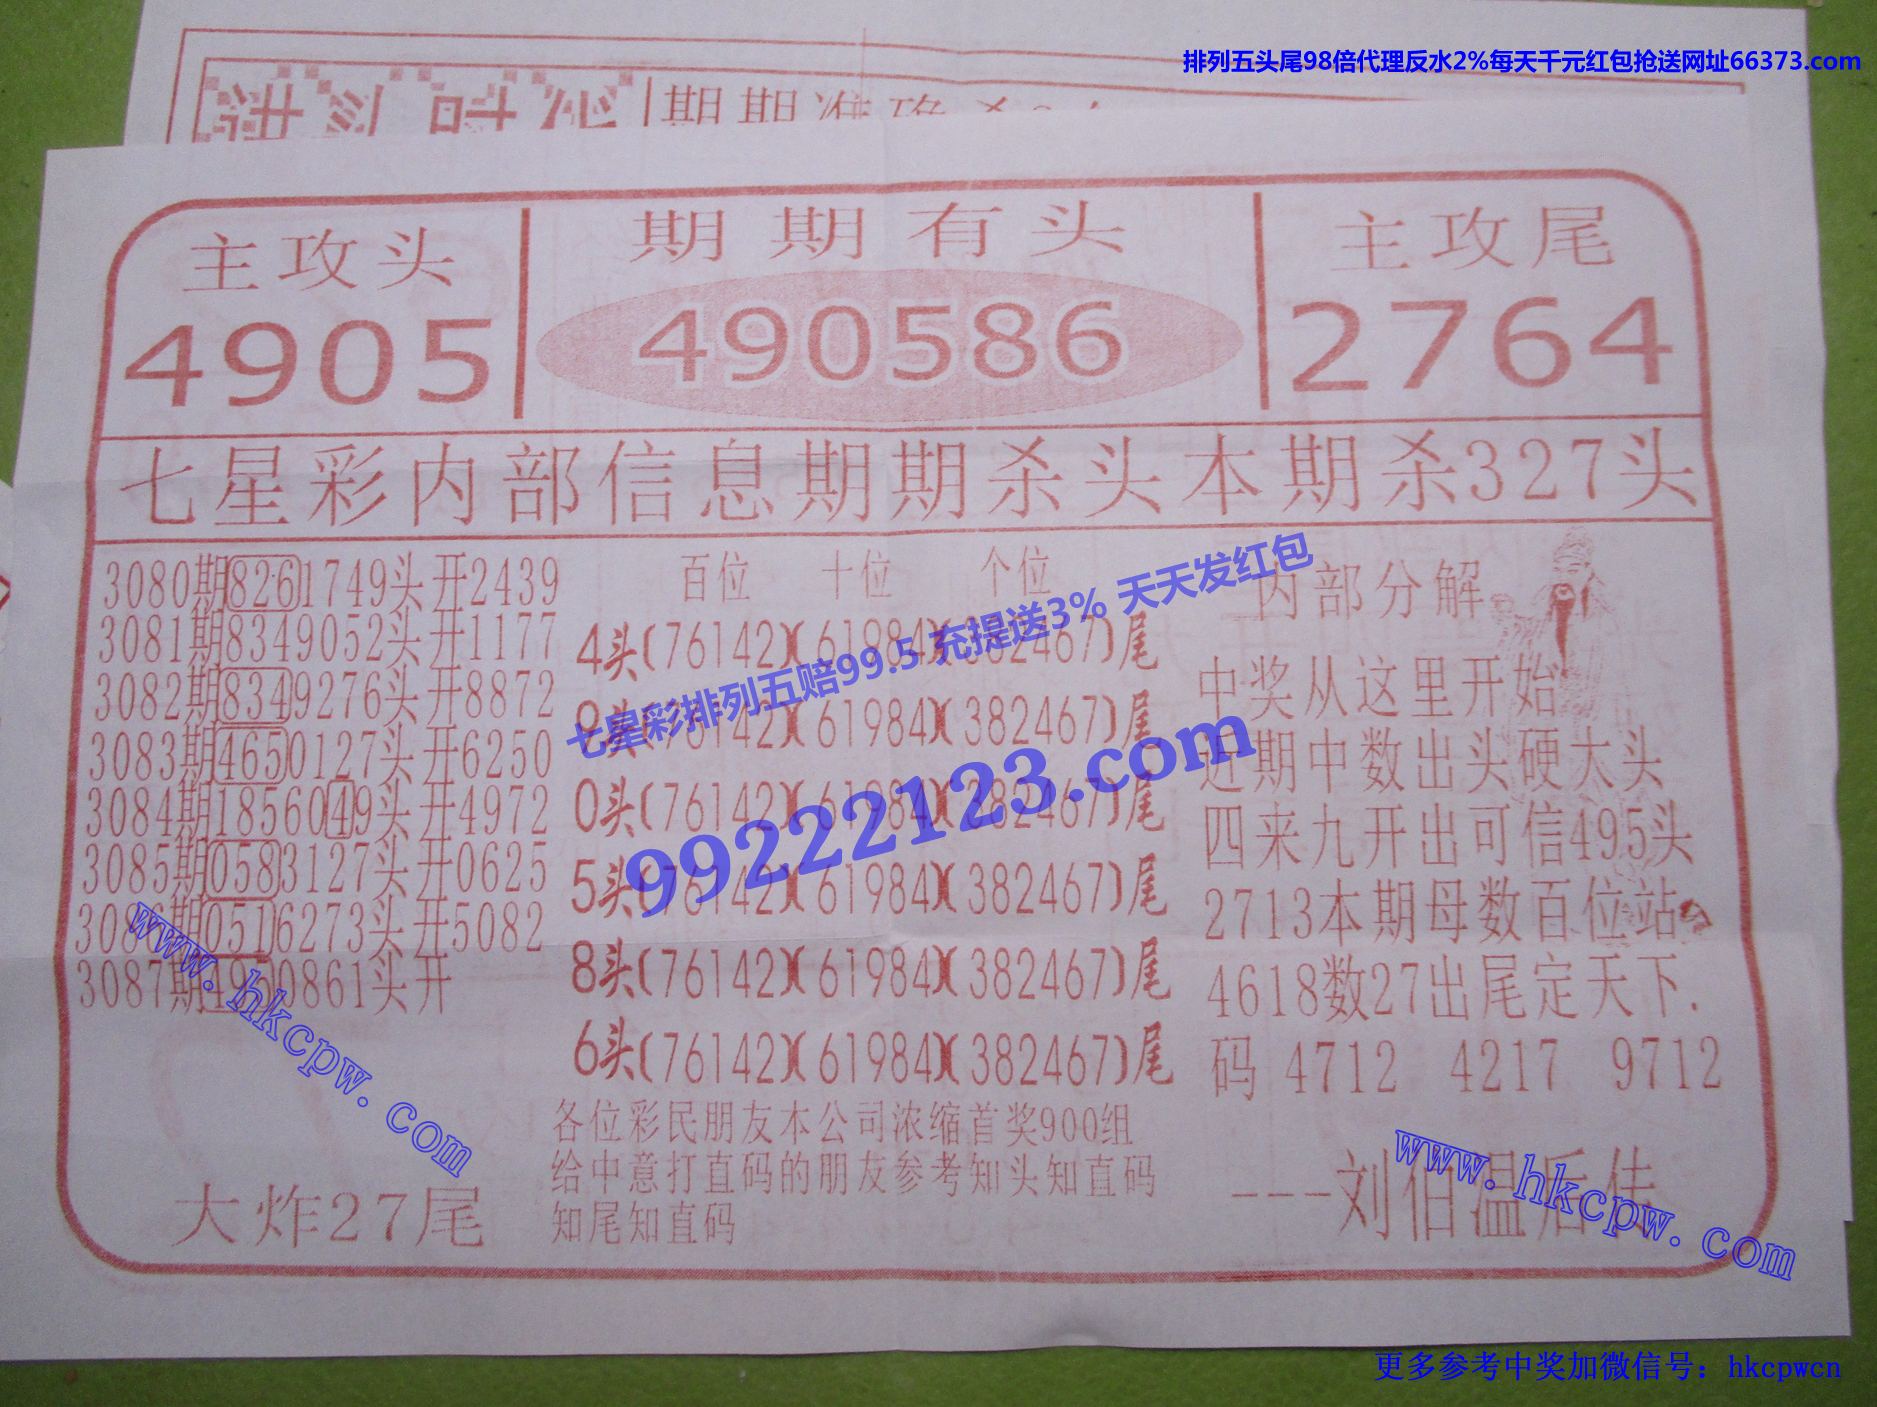 排列五头尾98倍代理反水2%每天千元红包抢送网址66373.com
期期准确杀
主攻头
4905
期期有头
490586
主攻尾
2764
七星彩内部信息期期杀头本期杀327头
3080期8261749头开2439
3081期8349052头开1177
3082期8349276头开8872
3083期4650127头开6250
3084期1856049头开4972
3085期0583127头开0625
3086期0516273头开5082
3087期4950861头开
大炸27尾
百位 十位 个位
4头(76142)(61984)(382467)尾
9头(76142)(61984)(382467)尾
0头(76142)(61984)(382467)尾
5头(76142)(61984)(382467)尾
8头(76142)(61984)(382467)尾
6头(76142)(61984)(382467)尾
各位彩民朋友本公司浓缩首奖900组
给中意打直码的朋友参考知头知直码
知尾知直码
内部分解
中奖从这里开始
近期中数出头硬太头
四来九开出可信495头
2713本期母数百位站
4618数27出尾定天下.
码 4712 4217 9712
---刘伯温后传
七星彩排列五赔99.5 充提送3% 天天发红包
99222123.com
www.hkcpw.com
www.hkcpw.com
更多参考中奖加微信号：hkcpwcn